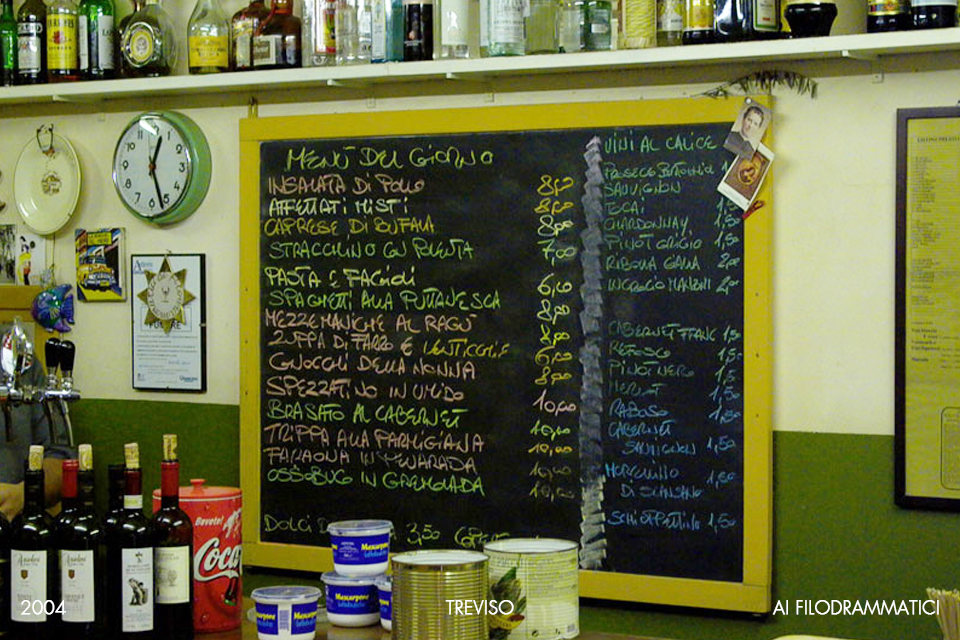 MENÙ DEL GIORNO
INSALATA DI POLLO 8,00
AFFETTATI MISTI 8,00
CAPRESE DI BUFALA 8,00
STRACCHINO CON POLENTA 7,00
PASTA E FAGIOLI 6,00
SPAGHETTI ALLA PUTTANESCA 8,00
MEZZEMANICHE AL RAGÙ 8,00
ZUPPA DI FARRO E LENTICCHIE 6,00
GNOCCHI DELLA NONNA 8,00
SPEZZATINO IN UMIDO 10,00
BRASATO AL CABERNET 10,00
TRIPPA ALLA PARMIGIANA 10,00
FARAONA IN PEVARADA 10,00
OSSOBUCO IN GREMOLADA 10,00
DOLCI 3,50
VINI AL CALICE
PROSECCO
SAUVIGNON
TOCAI
CHARDONNAY
PINOT GRIGIO 1,50
RIBOLLA GIALLA 2,00
INCROCIO MANZONI 2,00
CABERNET FRANC 1,50
REFOSCO 1,5
PINOT NERO 1,5
MERLOT 1,5
RABOSO 1,50
CABERNET
SAUVIGNON 1,50
MORELLINO
DI SCANSANO 1,80
SCHIOPPETTINO 1,50
Bevete!
Coca
Mascarpone
Mascarpone
Mascarpone
2004
TREVISO
AI FILODRAMMATICI